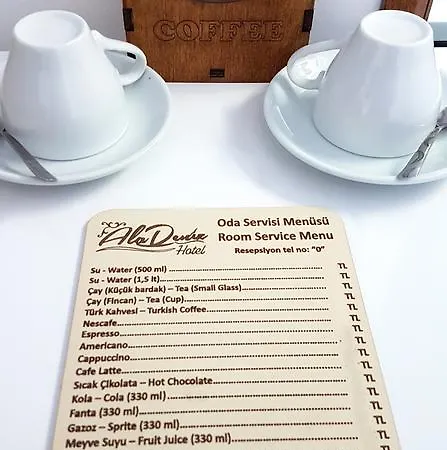 COFFEE
Ala Deniz
Hotel
Oda Servisi Menüsü
Room Service Menu
Resepsiyon tel no: "0"
Su - Water (500 ml) ........ TL
Su - Water (1,5 lt)........ TL
Çay (Küçük bardak) – Tea (Small Glass)........ TL
Çay (Fincan) – Tea (Cup)........ TL
Türk Kahvesi – Turkish Coffee........ TL
Nescafe........ TL
Espresso........ TL
Americano........ TL
Cappuccino........ TL
Cafe Latte........ TL
Sıcak Çikolata – Hot Chocolate........ TL
Kola – Cola (330 ml)........ TL
Fanta (330 ml)........ TL
Gazoz – Sprite (330 ml)........ TL
Meyve Suyu – Fruit Juice (330 ml)........ TL